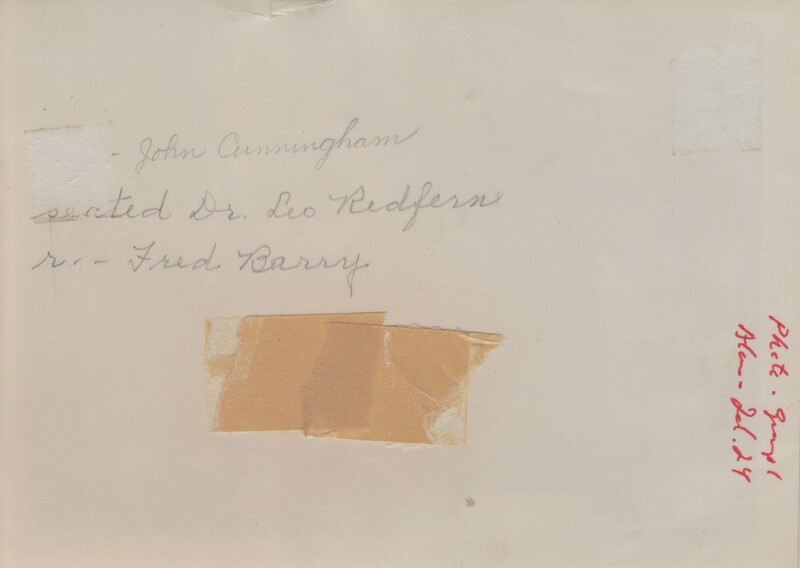 - John Cunningham
seated Dr. Leo Redfern
r. - Fred Barry
Photo - Group 1